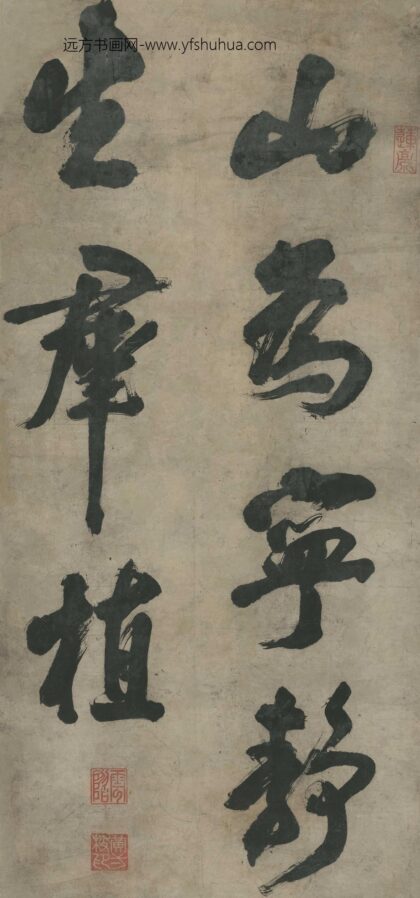 远方书画网-www.yfshuhua.com
山为寧靜
生羣植